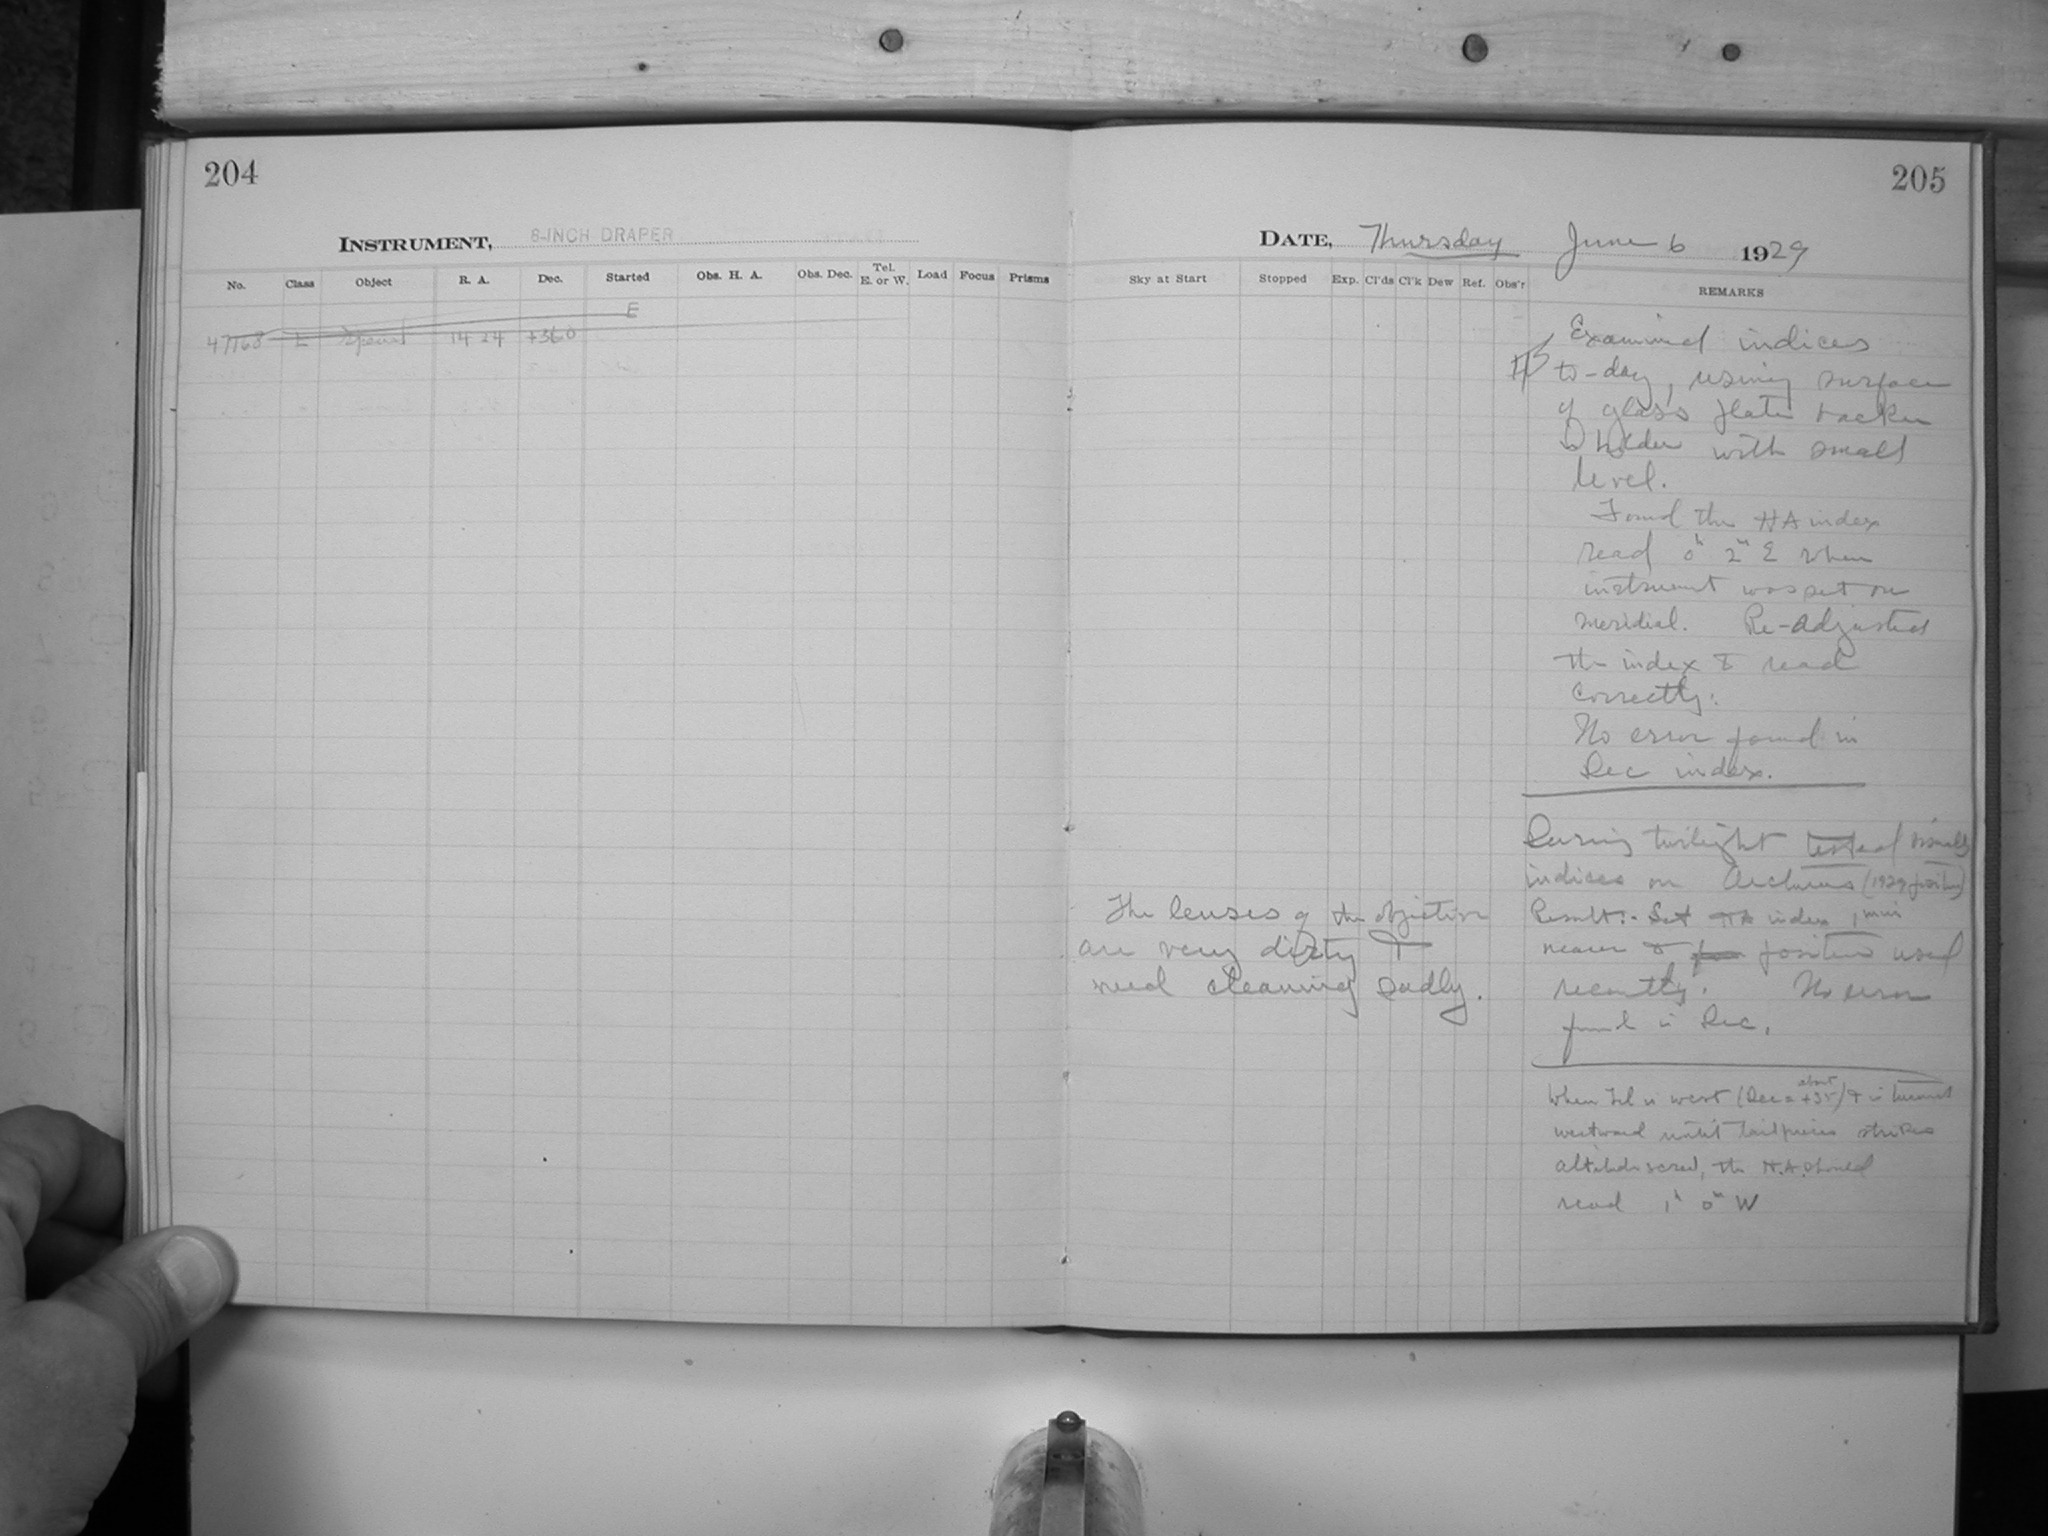 204
INSTRUMENT, 8-INCH DRAPER
No. Class Object R. A. Dec. Started Obs. H. A. Obs. Dec. Tel. E. or W. Load Focus Prisms
E
47168 L Special 14 24 +36.0
205
DATE, Thursday June 6 1929
Sky at Start Stopped Exp. Cl'ds Cl'k Dew Ref. Obs'r REMARKS
Examined indices
to-day, using surface
of glass plate
holder with small
level.
Found the HA index
read 0h 2m E when
instrument was put on
meridial. Re-adjusted
the index to read
correctly.
No error found in
Dec index.
During twilight tested visually
indices on Arcturus (1929 position)
Result:- Set HA index 1 min
nearer to position used
recently. No error
found in Dec.
The lenses of the objective
are very dirty &
need cleaning badly.
When Tel is west (Dec = about +35) & is turned
westward until tailpiece strikes
screw, the H.A. should
read 1h 0m W